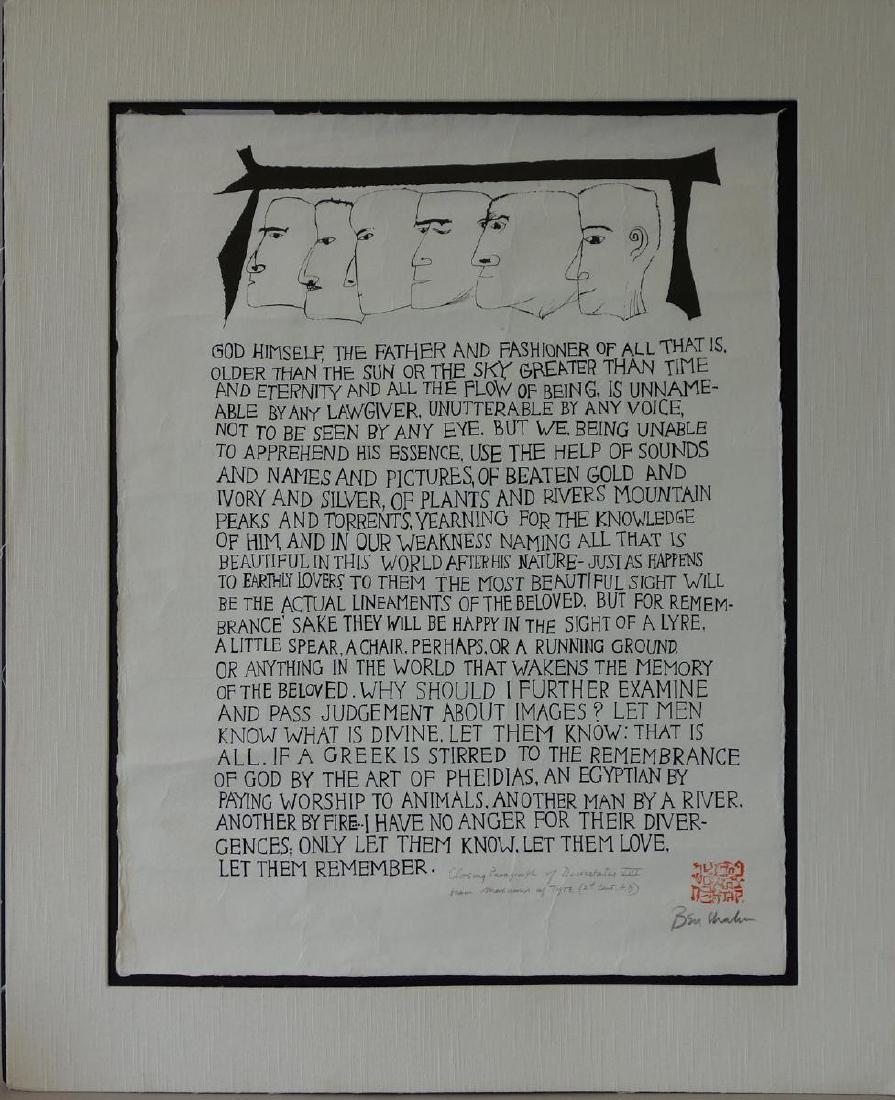 GOD HIMSELF, THE FATHER AND FASHIONER OF ALL THAT IS,
OLDER THAN THE SUN OR THE SKY GREATER THAN TIME
AND ETERNITY AND ALL THE FLOW OF BEING, IS UNNAME-
ABLE BY ANY LAWGIVER, UNUTTERABLE BY ANY VOICE,
NOT TO BE SEEN BY ANY EYE. BUT WE, BEING UNABLE
TO APPREHEND HIS ESSENCE, USE THE HELP OF SOUNDS
AND NAMES AND PICTURES, OF BEATEN GOLD AND
IVORY AND SILVER, OF PLANTS AND RIVERS MOUNTAIN
PEAKS AND TORRENTS, YEARNING FOR THE KNOWLEDGE
OF HIM, AND IN OUR WEAKNESS NAMING ALL THAT IS
BEAUTIFUL IN THIS WORLD AFTER HIS NATURE - JUST AS HAPPENS
TO EARTHLY LOVERS. TO THEM THE MOST BEAUTIFUL SIGHT WILL
BE THE ACTUAL LINEAMENTS OF THE BELOVED, BUT FOR REMEM-
BRANCE' SAKE THEY WILL BE HAPPY IN THE SIGHT OF A LYRE,
A LITTLE SPEAR, A CHAIR, PERHAPS, OR A RUNNING GROUND,
OR ANYTHING IN THE WORLD THAT WAKENS THE MEMORY
OF THE BELOVED. WHY SHOULD I FURTHER EXAMINE
AND PASS JUDGEMENT ABOUT IMAGES? LET MEN
KNOW WHAT IS DIVINE, LET THEM KNOW: THAT IS
ALL. IF A GREEK IS STIRRED TO THE REMEMBRANCE
OF GOD BY THE ART OF PHEIDIAS, AN EGYPTIAN BY
PAYING WORSHIP TO ANIMALS, ANOTHER MAN BY A RIVER,
ANOTHER BY FIRE - I HAVE NO ANGER FOR THEIR DIVER-
GENCES; ONLY LET THEM KNOW, LET THEM LOVE,
LET THEM REMEMBER.
Closing Paragraph of Dissertatio VIII
from Maximus of Tyre (2d Cent. A.D)
Ben Shahn